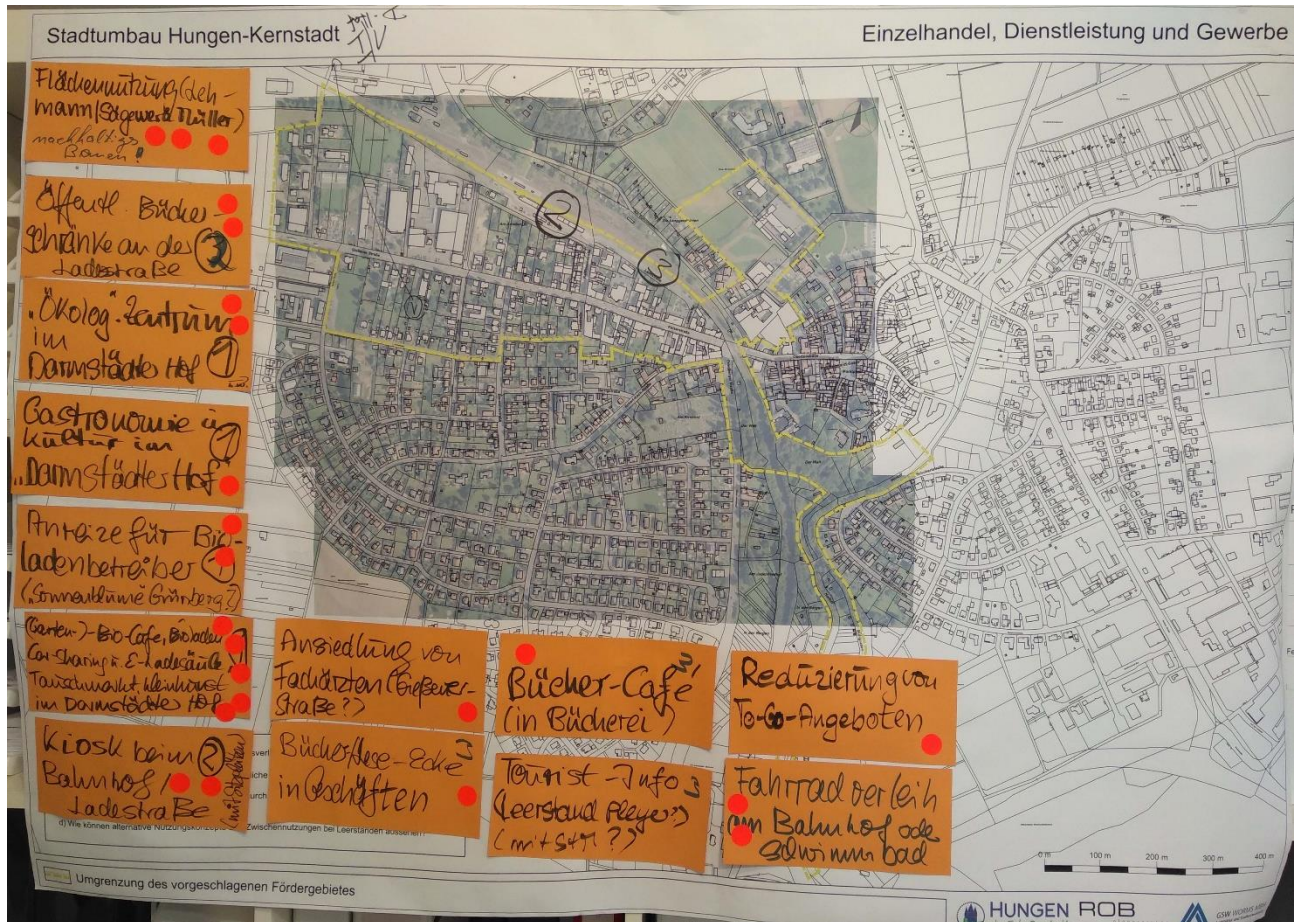 Stadtumbau Hungen-Kernstadt
Einzelhandel, Dienstleistung und Gewerbe
Flächennutzung (Leh-
mann/Sägewerk Müller)
nachhaltiges
Bauen!
Öffentl. Bücher-
schränke an der
Ladestraße
3
"Ökolog." Zentrum
im
Darmstädter Hof
1
Gastronomie u.
Kultur im
"Darmstädter Hof"
1
Anreize für Bio-
ladenbetreiber
1
("Sonnenblume Grünberg"?)
(Garten-)-Bio-Cafe, Bioladen
Car-Sharing u. E-Ladesäule
Tauschmarkt, Kleinkunst
im Darmstädter Hof
1
Kiosk beim
Bahnhof /
Ladestraße
2
Ansiedlung von
Fachärzten (Gießener-
straße?)
Bücher/Lese-Ecke
in Geschäften
Bücher-Café
(in Bücherei)
Tourist-Info
(Leerstand
(mit
Reduzierung von
To-Go-Angeboten
Fahrradverleih
am Bahnhof ode
Schwimmbad
2
3
d) Wie können alternative
Zwischennutzungen bei Leerständen aussehen?
0 m
100 m
200 m
300 m
400 m
Umgrenzung des vorgeschlagenen Fördergebietes
HUNGEN
ROB
GSW WORMS